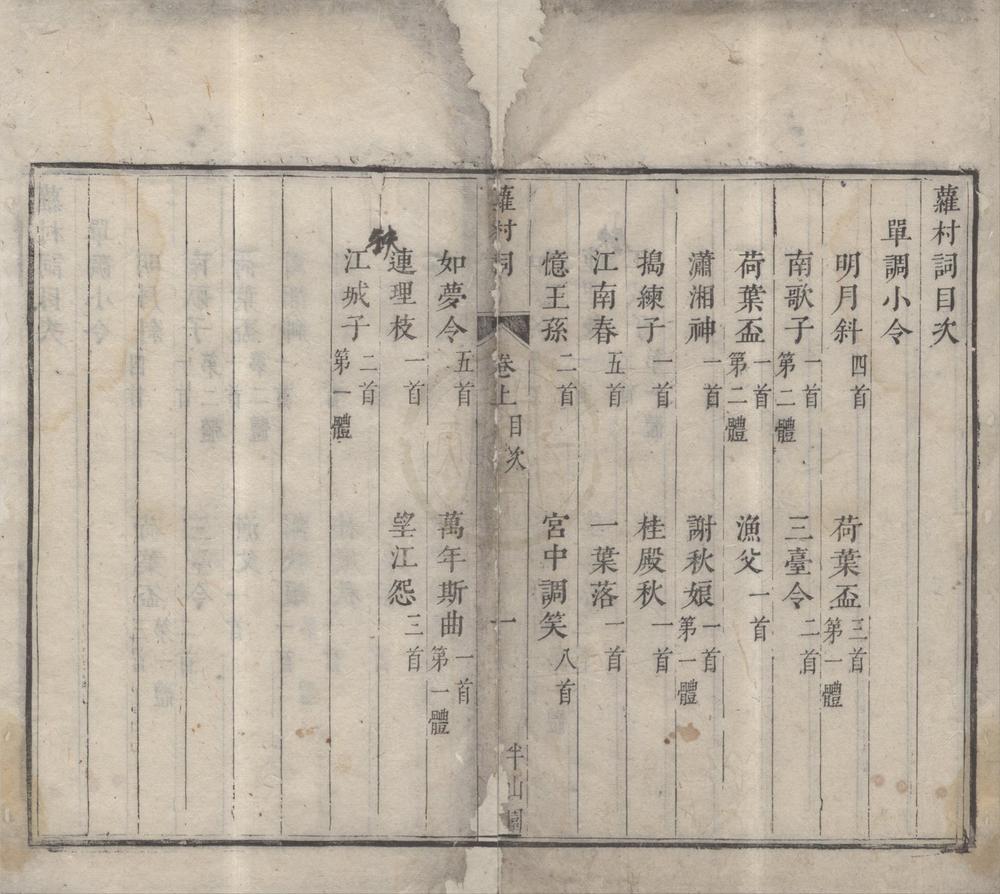 蘿村詞目次
單調小令
明月斜 四首 荷葉盃 三首第一體
南歌子 一首第二體 三臺令 二首
荷葉盃 一首第二體 漁父 一首
瀟湘神 一首 謝秋娘 一首第一體
搗練子 一首 桂殿秋 一首
江南春 五首 一葉落 一首
憶王孫 二首 宮中調笑 八首
蘿村詞 卷上 目次 一 半山園
如夢令 五首 萬年斯曲 一首第一體
連理枝 一首 望江怨 三首
江城子 二首第一體